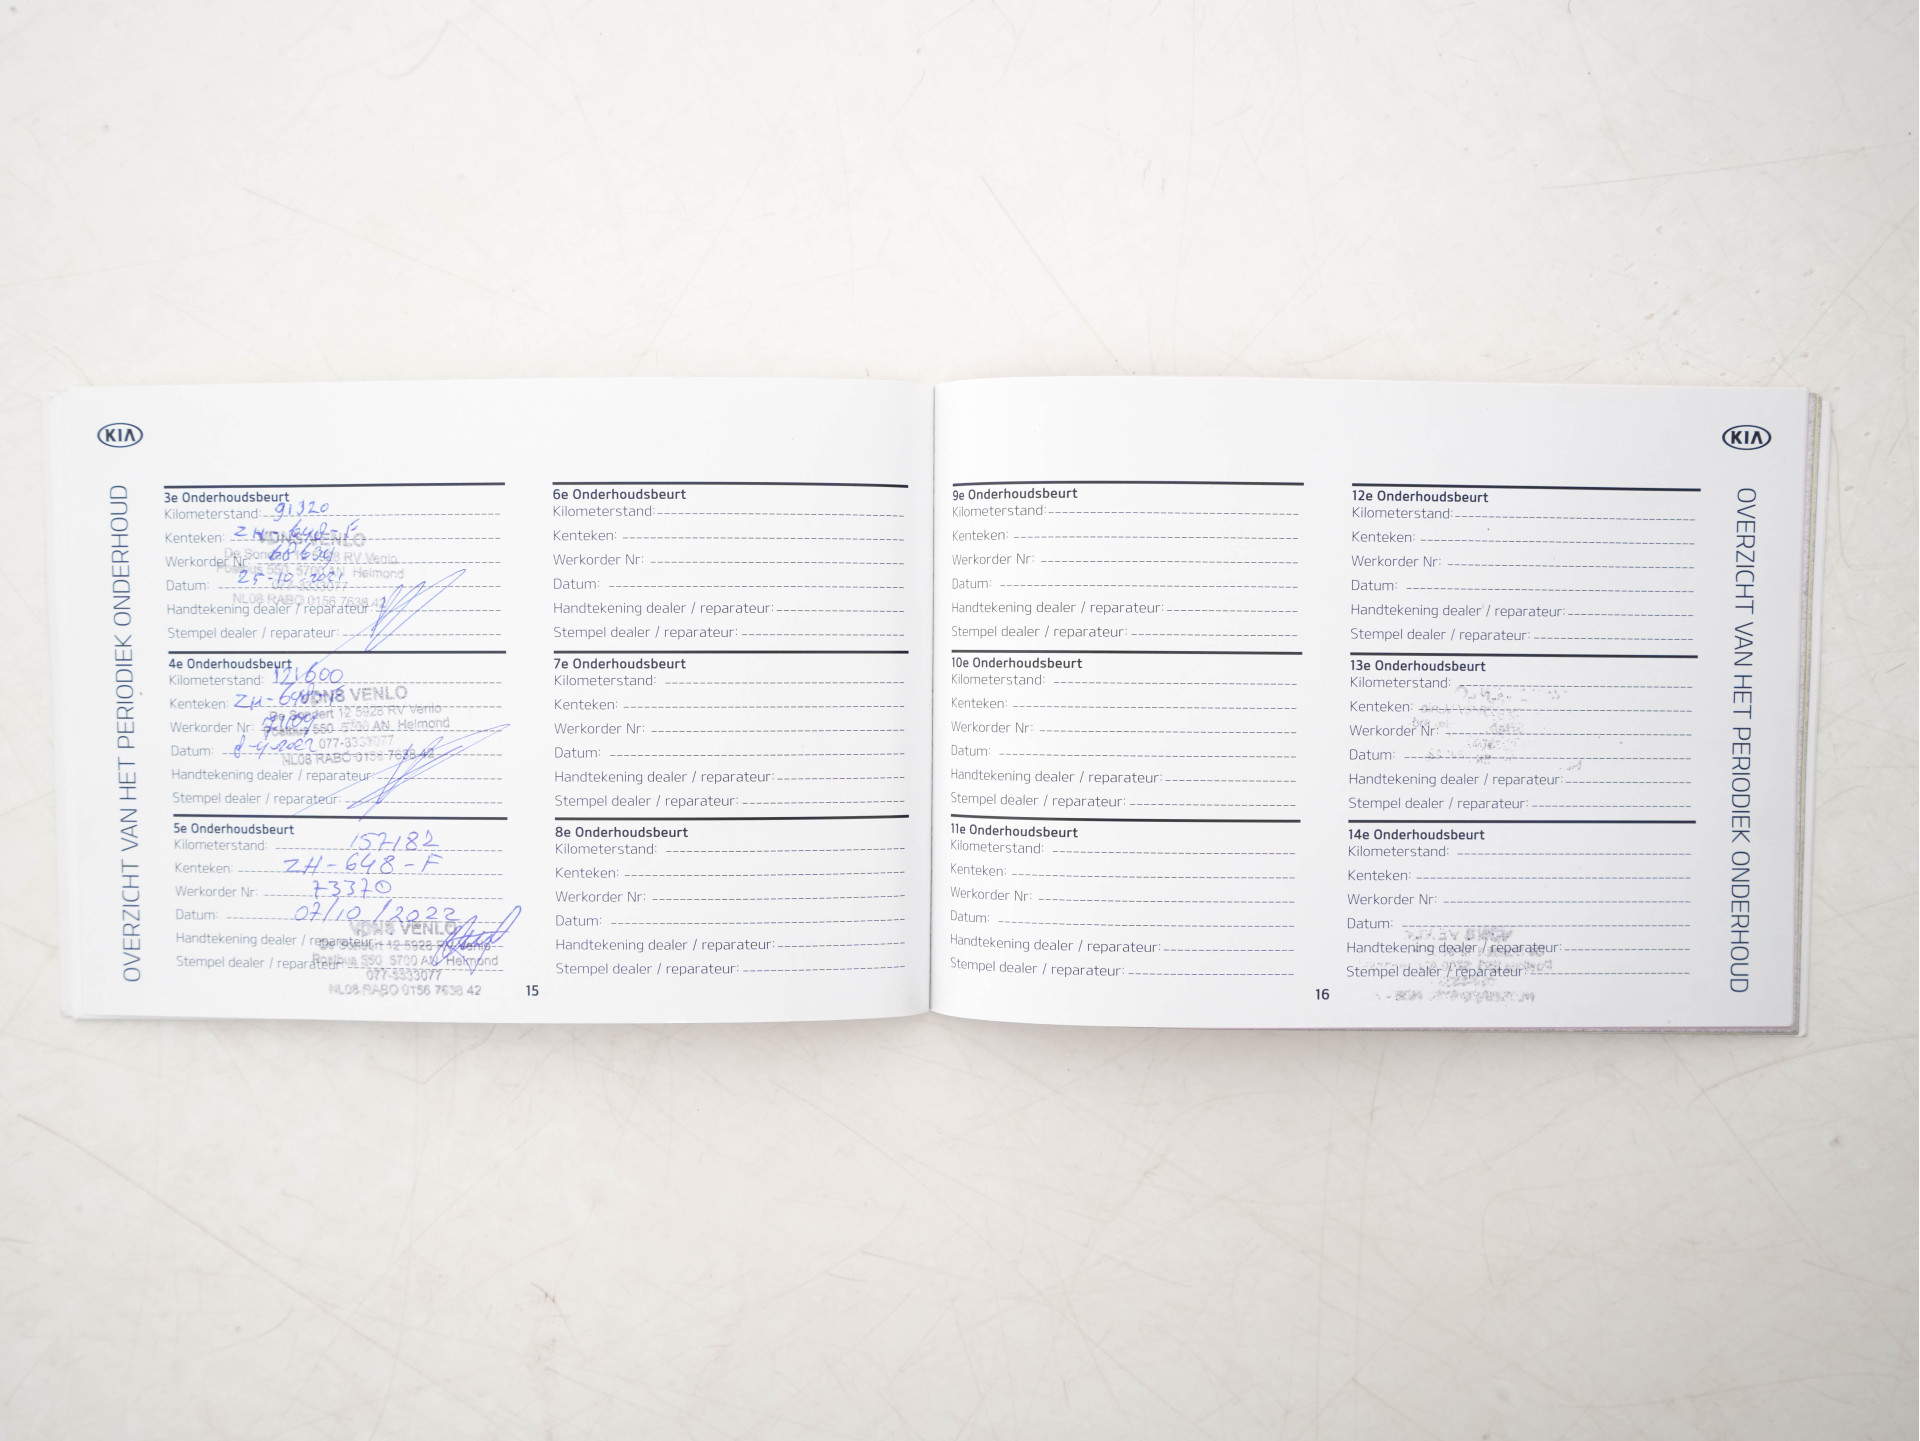 KIA
OVERZICHT VAN HET PERIODIEK ONDERHOUD
3e Onderhoudsbeurt
Kilometerstand: 91320
Kenteken: ZH-648-F
Werkorder Nr:
Datum: 25-10-2021
Handtekening dealer / reparateur:
Stempel dealer / reparateur:
VDNS VENLO
De Sondert 12 5928 RV Venlo
Postbus 550 5700 AN Helmond
077-3333077
NL08 RABO 0156 7638 42
4e Onderhoudsbeurt
Kilometerstand: 121600
Kenteken: ZH-648-F
Werkorder Nr:
Datum:
Handtekening dealer / reparateur:
Stempel dealer / reparateur:
VDNS VENLO
De Sondert 12 5928 RV Venlo
Postbus 550 5700 AN Helmond
077-3333077
NL08 RABO 0156 7638 42
5e Onderhoudsbeurt
Kilometerstand: 157182
Kenteken: ZH-648-F
Werkorder Nr: 73370
Datum: 07/10/2022
Handtekening dealer / reparateur:
Stempel dealer / reparateur:
VDNS VENLO
De Sondert 12 5928 RV Venlo
Postbus 550 5700 AN Helmond
077-3333077
NL08 RABO 0156 7638 42
6e Onderhoudsbeurt
Kilometerstand:
Kenteken:
Werkorder Nr:
Datum:
Handtekening dealer / reparateur:
Stempel dealer / reparateur:
7e Onderhoudsbeurt
Kilometerstand:
Kenteken:
Werkorder Nr:
Datum:
Handtekening dealer / reparateur:
Stempel dealer / reparateur:
8e Onderhoudsbeurt
Kilometerstand:
Kenteken:
Werkorder Nr:
Datum:
Handtekening dealer / reparateur:
Stempel dealer / reparateur:
15
9e Onderhoudsbeurt
Kilometerstand:
Kenteken:
Werkorder Nr:
Datum:
Handtekening dealer / reparateur:
Stempel dealer / reparateur:
10e Onderhoudsbeurt
Kilometerstand:
Kenteken:
Werkorder Nr:
Datum:
Handtekening dealer / reparateur:
Stempel dealer / reparateur:
11e Onderhoudsbeurt
Kilometerstand:
Kenteken:
Werkorder Nr:
Datum:
Handtekening dealer / reparateur:
Stempel dealer / reparateur:
12e Onderhoudsbeurt
Kilometerstand:
Kenteken:
Werkorder Nr:
Datum:
Handtekening dealer / reparateur:
Stempel dealer / reparateur:
13e Onderhoudsbeurt
Kilometerstand:
Kenteken:
Werkorder Nr:
Datum:
Handtekening dealer / reparateur:
Stempel dealer / reparateur:
14e Onderhoudsbeurt
Kilometerstand:
Kenteken:
Werkorder Nr:
Datum:
Handtekening dealer / reparateur:
Stempel dealer / reparateur:
16
KIA
OVERZICHT VAN HET PERIODIEK ONDERHOUD